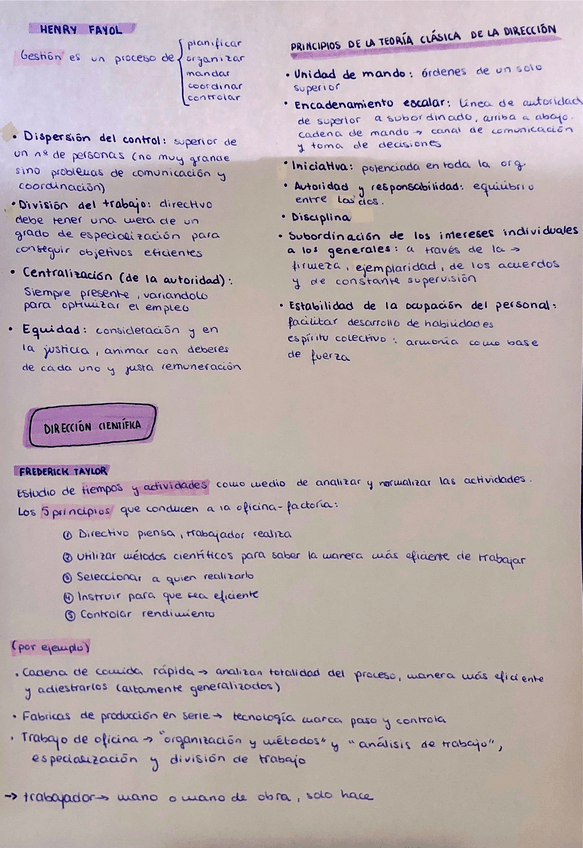 HENRY FAYOL
Gestión es un proceso de
planificar
organizar
mandar
coordinar
controlar
• Dispersión del control: superior de
un nº de personas (no muy grande
sino problemas de comunicación y
coordinación)
• División del trabajo: directivo
debe tener una meta de un
grado de especialización para
conseguir objetivos eficientes
• Centralización (de la autoridad):
Siempre presente, variandolo
para optimizar el empleo
• Equidad: consideración y en
la justicia, animar con deberes
de cada uno y justa remuneración
PRINCIPIOS DE LA TEORÍA CLÁSICA DE LA DIRECCIÓN
• Unidad de mando: órdenes de un solo
superior
• Encadenamiento escalar: línea de autoridad
de superior a subordinado, arriba a abajo.
cadena de mando → canal de comunicación
y toma de decisiones
• Iniciativa: potenciada en toda la org.
• Autoridad y responsabilidad: equilibrio
entre las dos.
• Disciplina
• Subordinación de los intereses individuales
a los generales: a través de la →
firmeza, ejemplaridad, de los acuerdos
y de constante supervisión
• Estabilidad de la ocupación del personal:
facilitar desarrollo de habilidades
espíritu colectivo: armonía como base
de fuerza
DIRECCIÓN CIENTÍFICA
FREDERICK TAYLOR
Estudio de tiempos y actividades como medio de analizar y normalizar las actividades.
Los 5 principios que conducen a la oficina-factoría:
① Directivo piensa, trabajador realiza
② Utilizar métodos científicos para saber la manera más eficiente de trabajar
③ Seleccionar a quien realizarlo
④ Instruir para que sea eficiente
⑤ Controlar rendimiento
(por ejemplo)
• Cadena de comida rápida → analizan totalidad del proceso, manera más eficiente
y adiestrarlos (altamente generalizados)
• Fabricas de producción en serie → tecnología marca paso y controla
• Trabajo de oficina → "organización y métodos" y "análisis de trabajo",
especialización y división de trabajo
→ trabajador → mano o mano de obra, solo hace